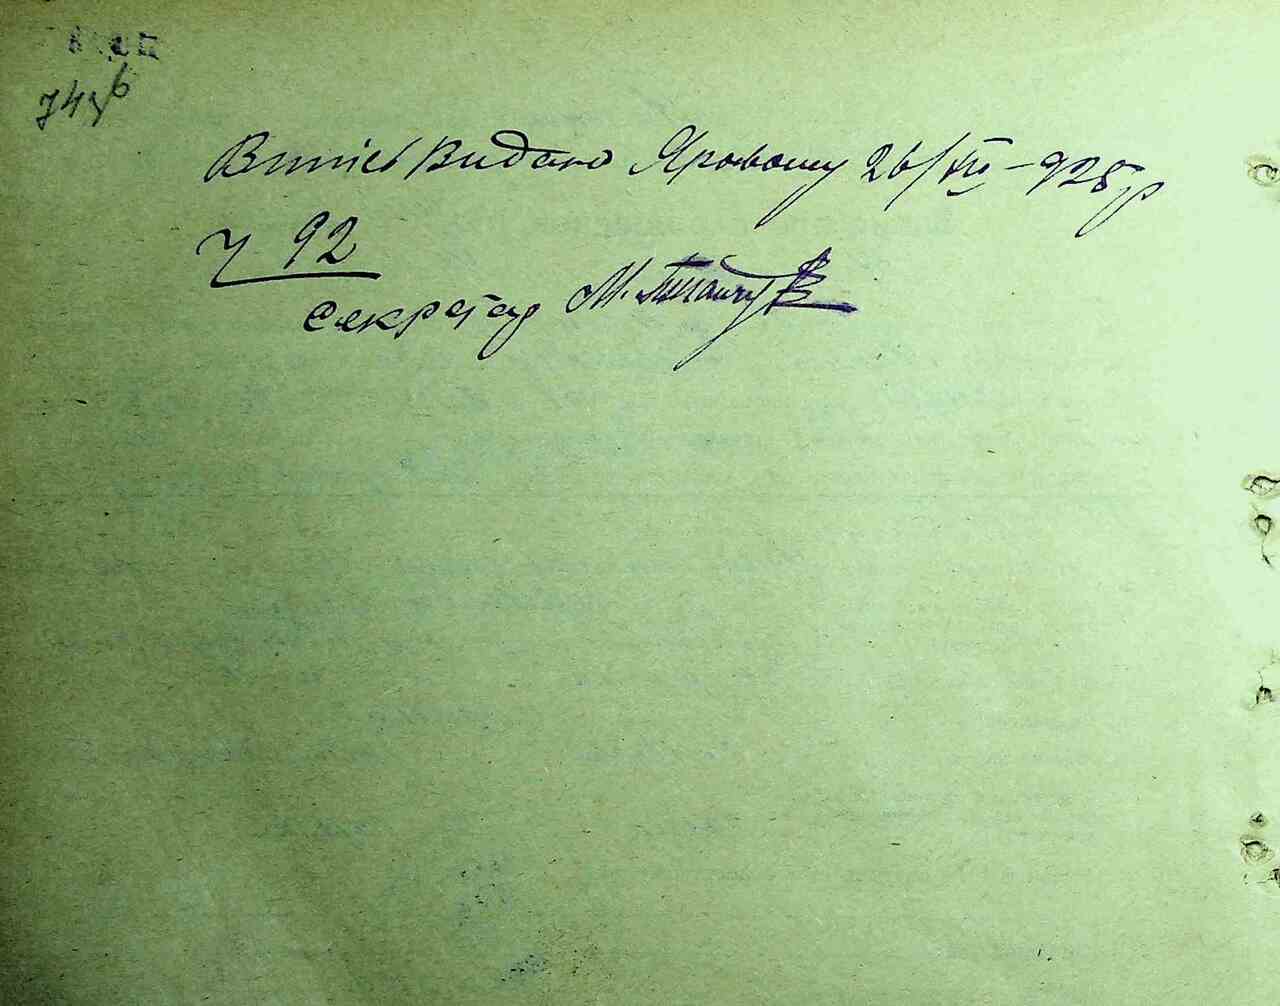 Витпісь видано Яровому 26/VII-925р
ч 92
секретар М.